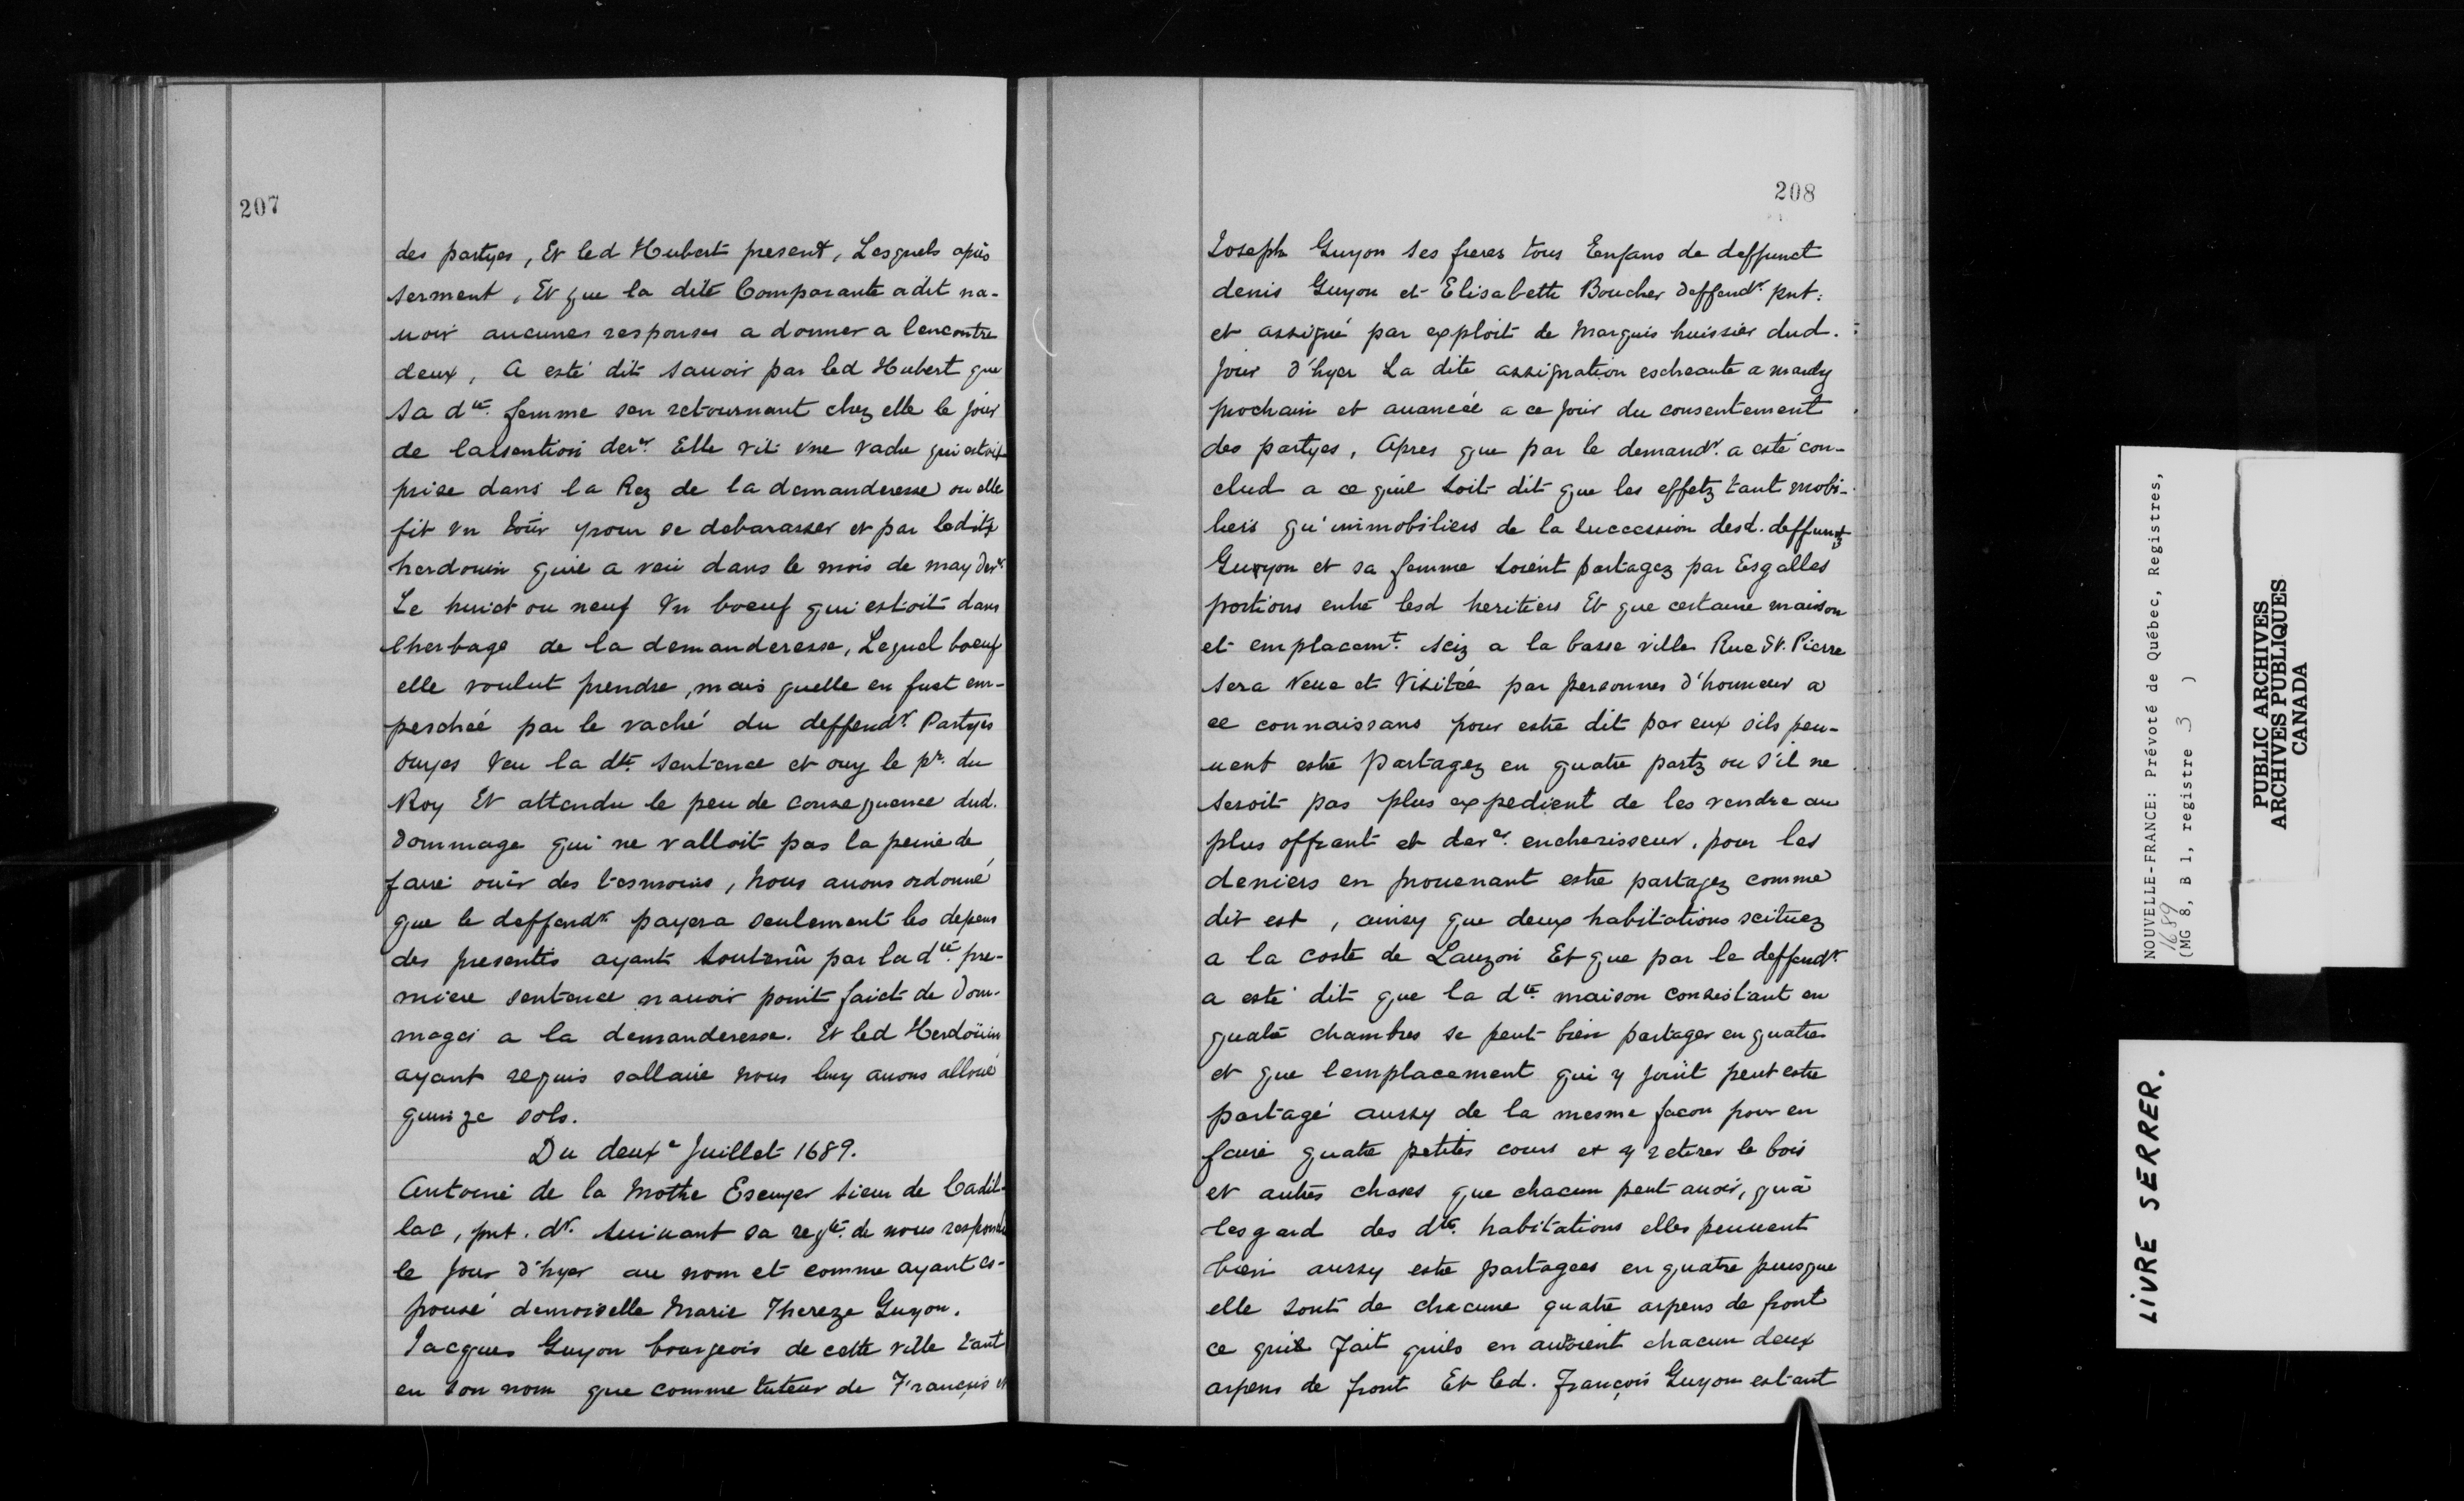 207
des partyes, Et led Hubert present, Lesquels après
serment, Et que la dite Comparante a dit na-
uoir aucunes responses a donner a lencontre
deux, A esté dit sauoir par led Hubert que
sa dte. femme sen retournant chez elle le jour
de lassention der. Elle vit vne vache qui estoit
prise dans la Rez de la demanderesse ou elle
fit vn tour pour se debarasser et par ledit
herdouin quil a veu dans le mois de may der.
Le huict ou neuf Vn boeuf qui estoit dans
lherbage de la demanderesse, Lequel boeuf
elle voulut prendre, mais quelle en fust em-
peschée par le vaché du deffendr. Partyes
ouyes Veu la dte. sentence et ouy le pr. du
Roy Et attendu le peu de consequence dud.
dommage qui ne valloit pas la peine de
faire ouir des tesmoins, nous auons ordonné
que le deffendr. payera seulement les depens
des presentes ayant soutenû par la dte. pre-
miere sentence nauoir point faict de dom-
mages a la demanderesse. Et led Herdoüin
ayant requis sallaire nous luy auons alloué
quinze sols.
Du deuxe Juillet 1689.
Antoine de la Mothe Escuyer sieur de Cadil-
lac, pnt. dr. suiuant sa reqte. de nous respondu
le jour d'hyer au nom et comme ayant es-
pousé demoiselle Marie Thereze Guyon.
Jacques Guyon bourgeois de cette ville tant
en son nom que comme tuteur de François et
208
Joseph Guyon ses freres tous Enfans de deffunct
denis Guyon et Elisabette Boucher deffendr. pnt:
et assigné par exploit de Marquis huissier dud.
jour d'hyer La dite assignation escheante a mardy
prochain et auancée a ce jour du consentement
des partyes, Apres que par le demandr. a esté con-
clud a ce quil soit dit que les effetz tant mobi-
liers qu'immobiliers de la succession desd. deffuntz
Guyon et sa femme soient partagez par Esgalles
portions entre lesd heritiers Et que certaine maison
et emplacemt. sciz a la basse ville Rue St. Pierre
sera Veue et Visitée par personnes d'honneur a
ce connaissans pour estre dit par eux sils peu-
uent estre partagez en quatre partz ou s'il ne
seroit pas plus expedient de les vendre au
plus offrant et der. encherisseur, pour les
deniers en prouenant estre partagez comme
dit est, ainsy que deux habitations scituez
a la coste de Lauzon Et que par le deffendr.
a esté dit que la dte. maison consistant en
quatre chambres se peut bien partager en quatre
et que lemplacement qui y joint peut estre
partagé aussy de la mesme facon pour en
faire quatre petites cours et y retirer le bois
et autres choses que chacun peut auoir, qu'à
lesgard des dte. habitations elles peuuent
bien aussy estre partagees en quatre puisque
elle sont de chacune quatre arpens de front
ce quil fait quils en auroient chacun deux
arpens de front Et led. François Guyon estant
NOUVELLE-FRANCE: Prévoté de Québec, Registres,
1689
(MG 8, B 1, registre 3 )
PUBLIC ARCHIVES
ARCHIVES PUBLIQUES
CANADA
LIVRE SERRER.